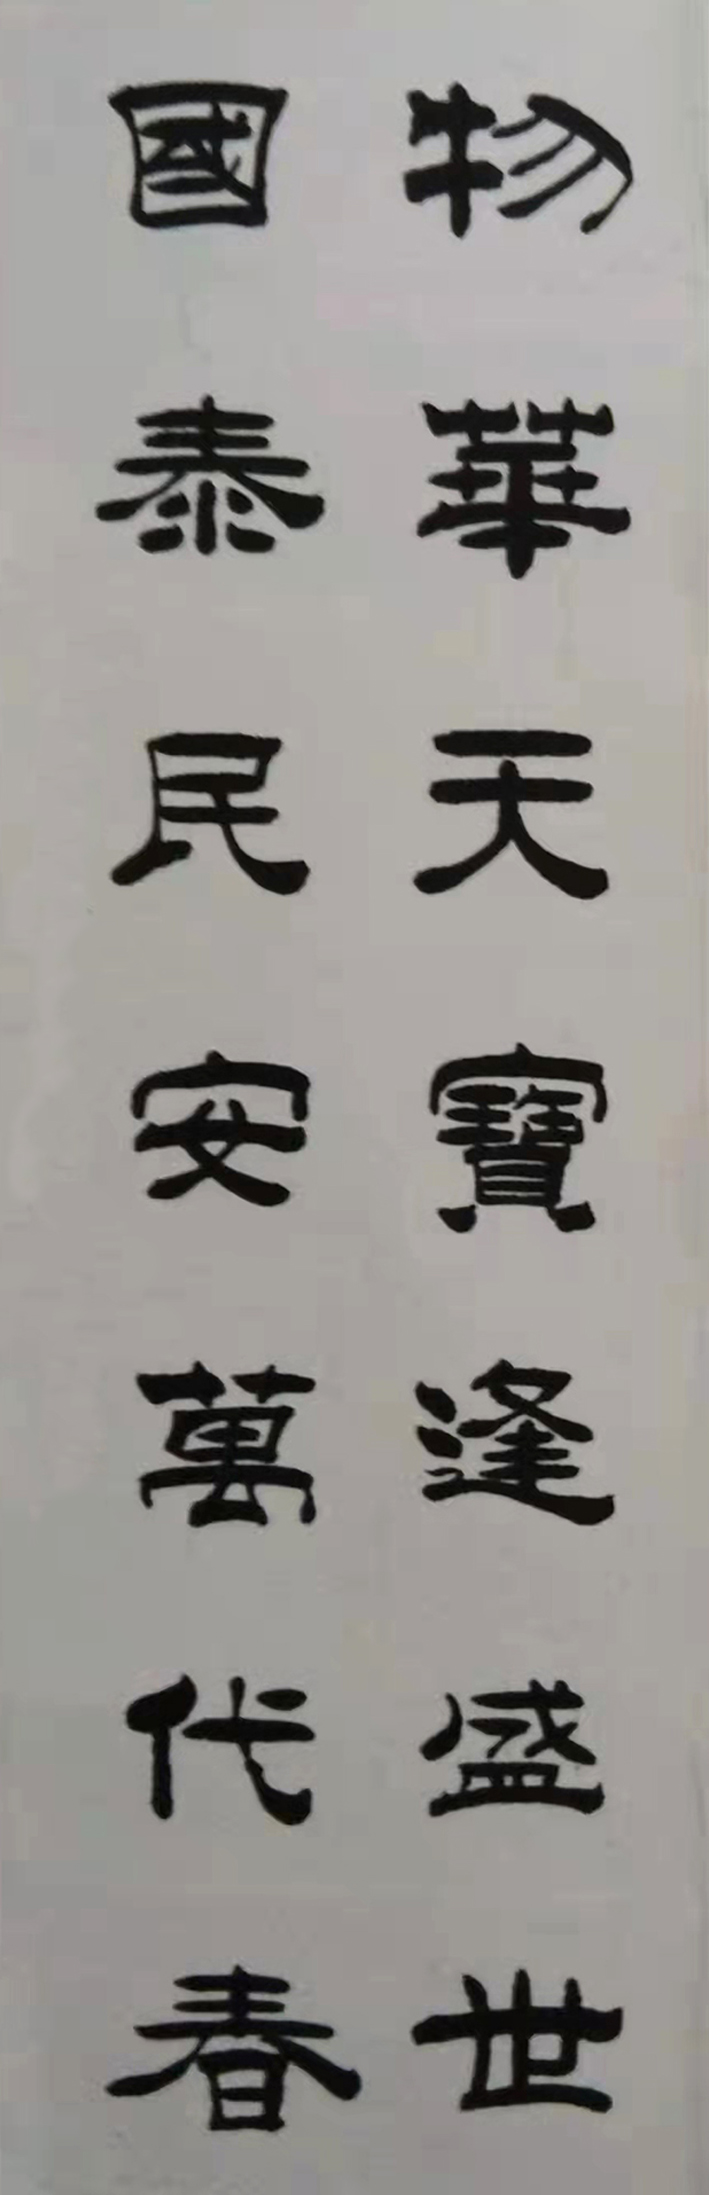 物華天寶逢盛世
國泰民安萬代春